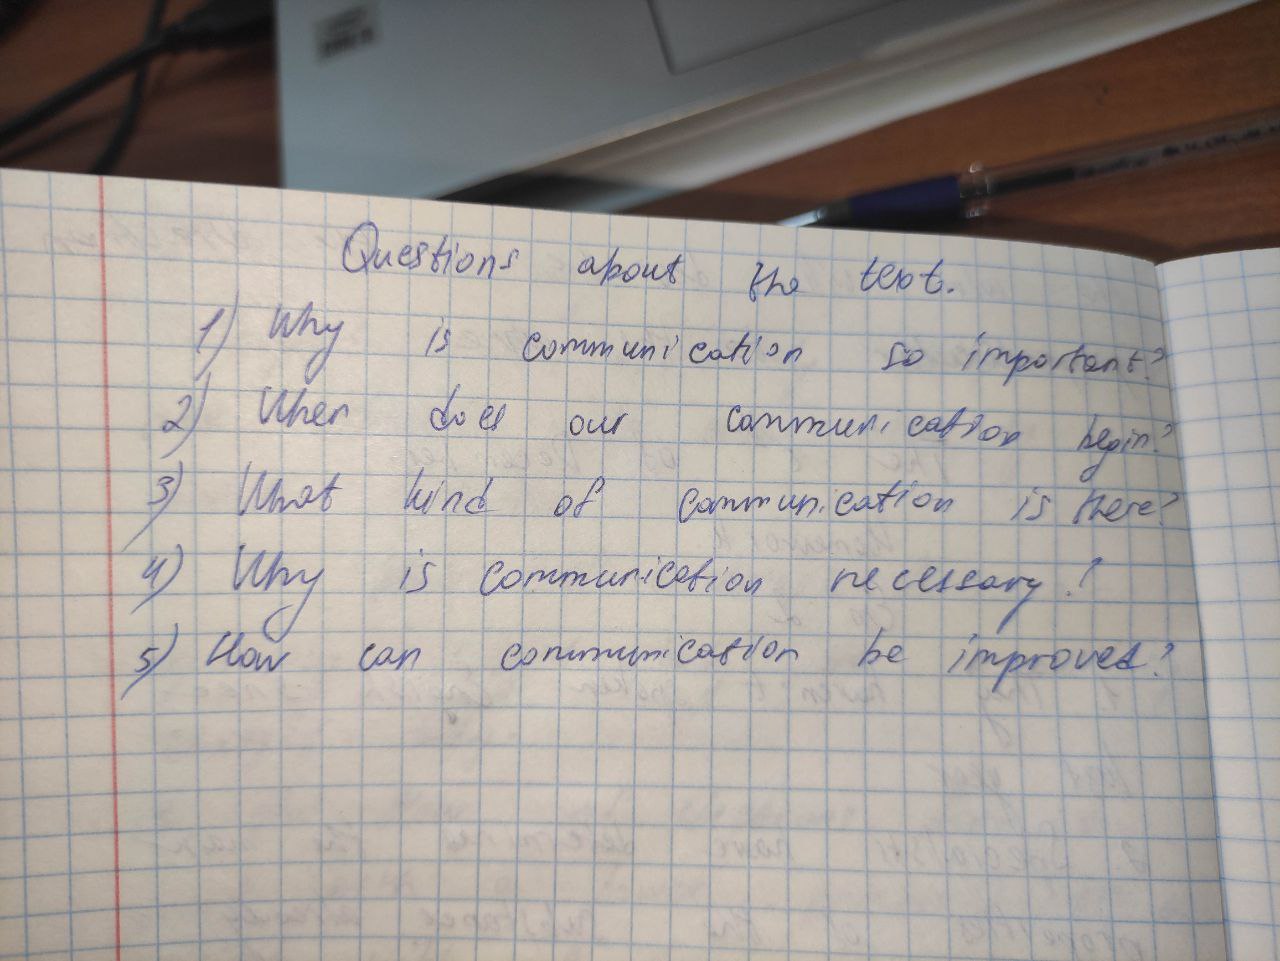 Questions about the text.
1) Why is communication so important?
2) When does our communication begin?
3) What kind of communication is there?
4) Why is communication necessary?
5) How can communication be improved?